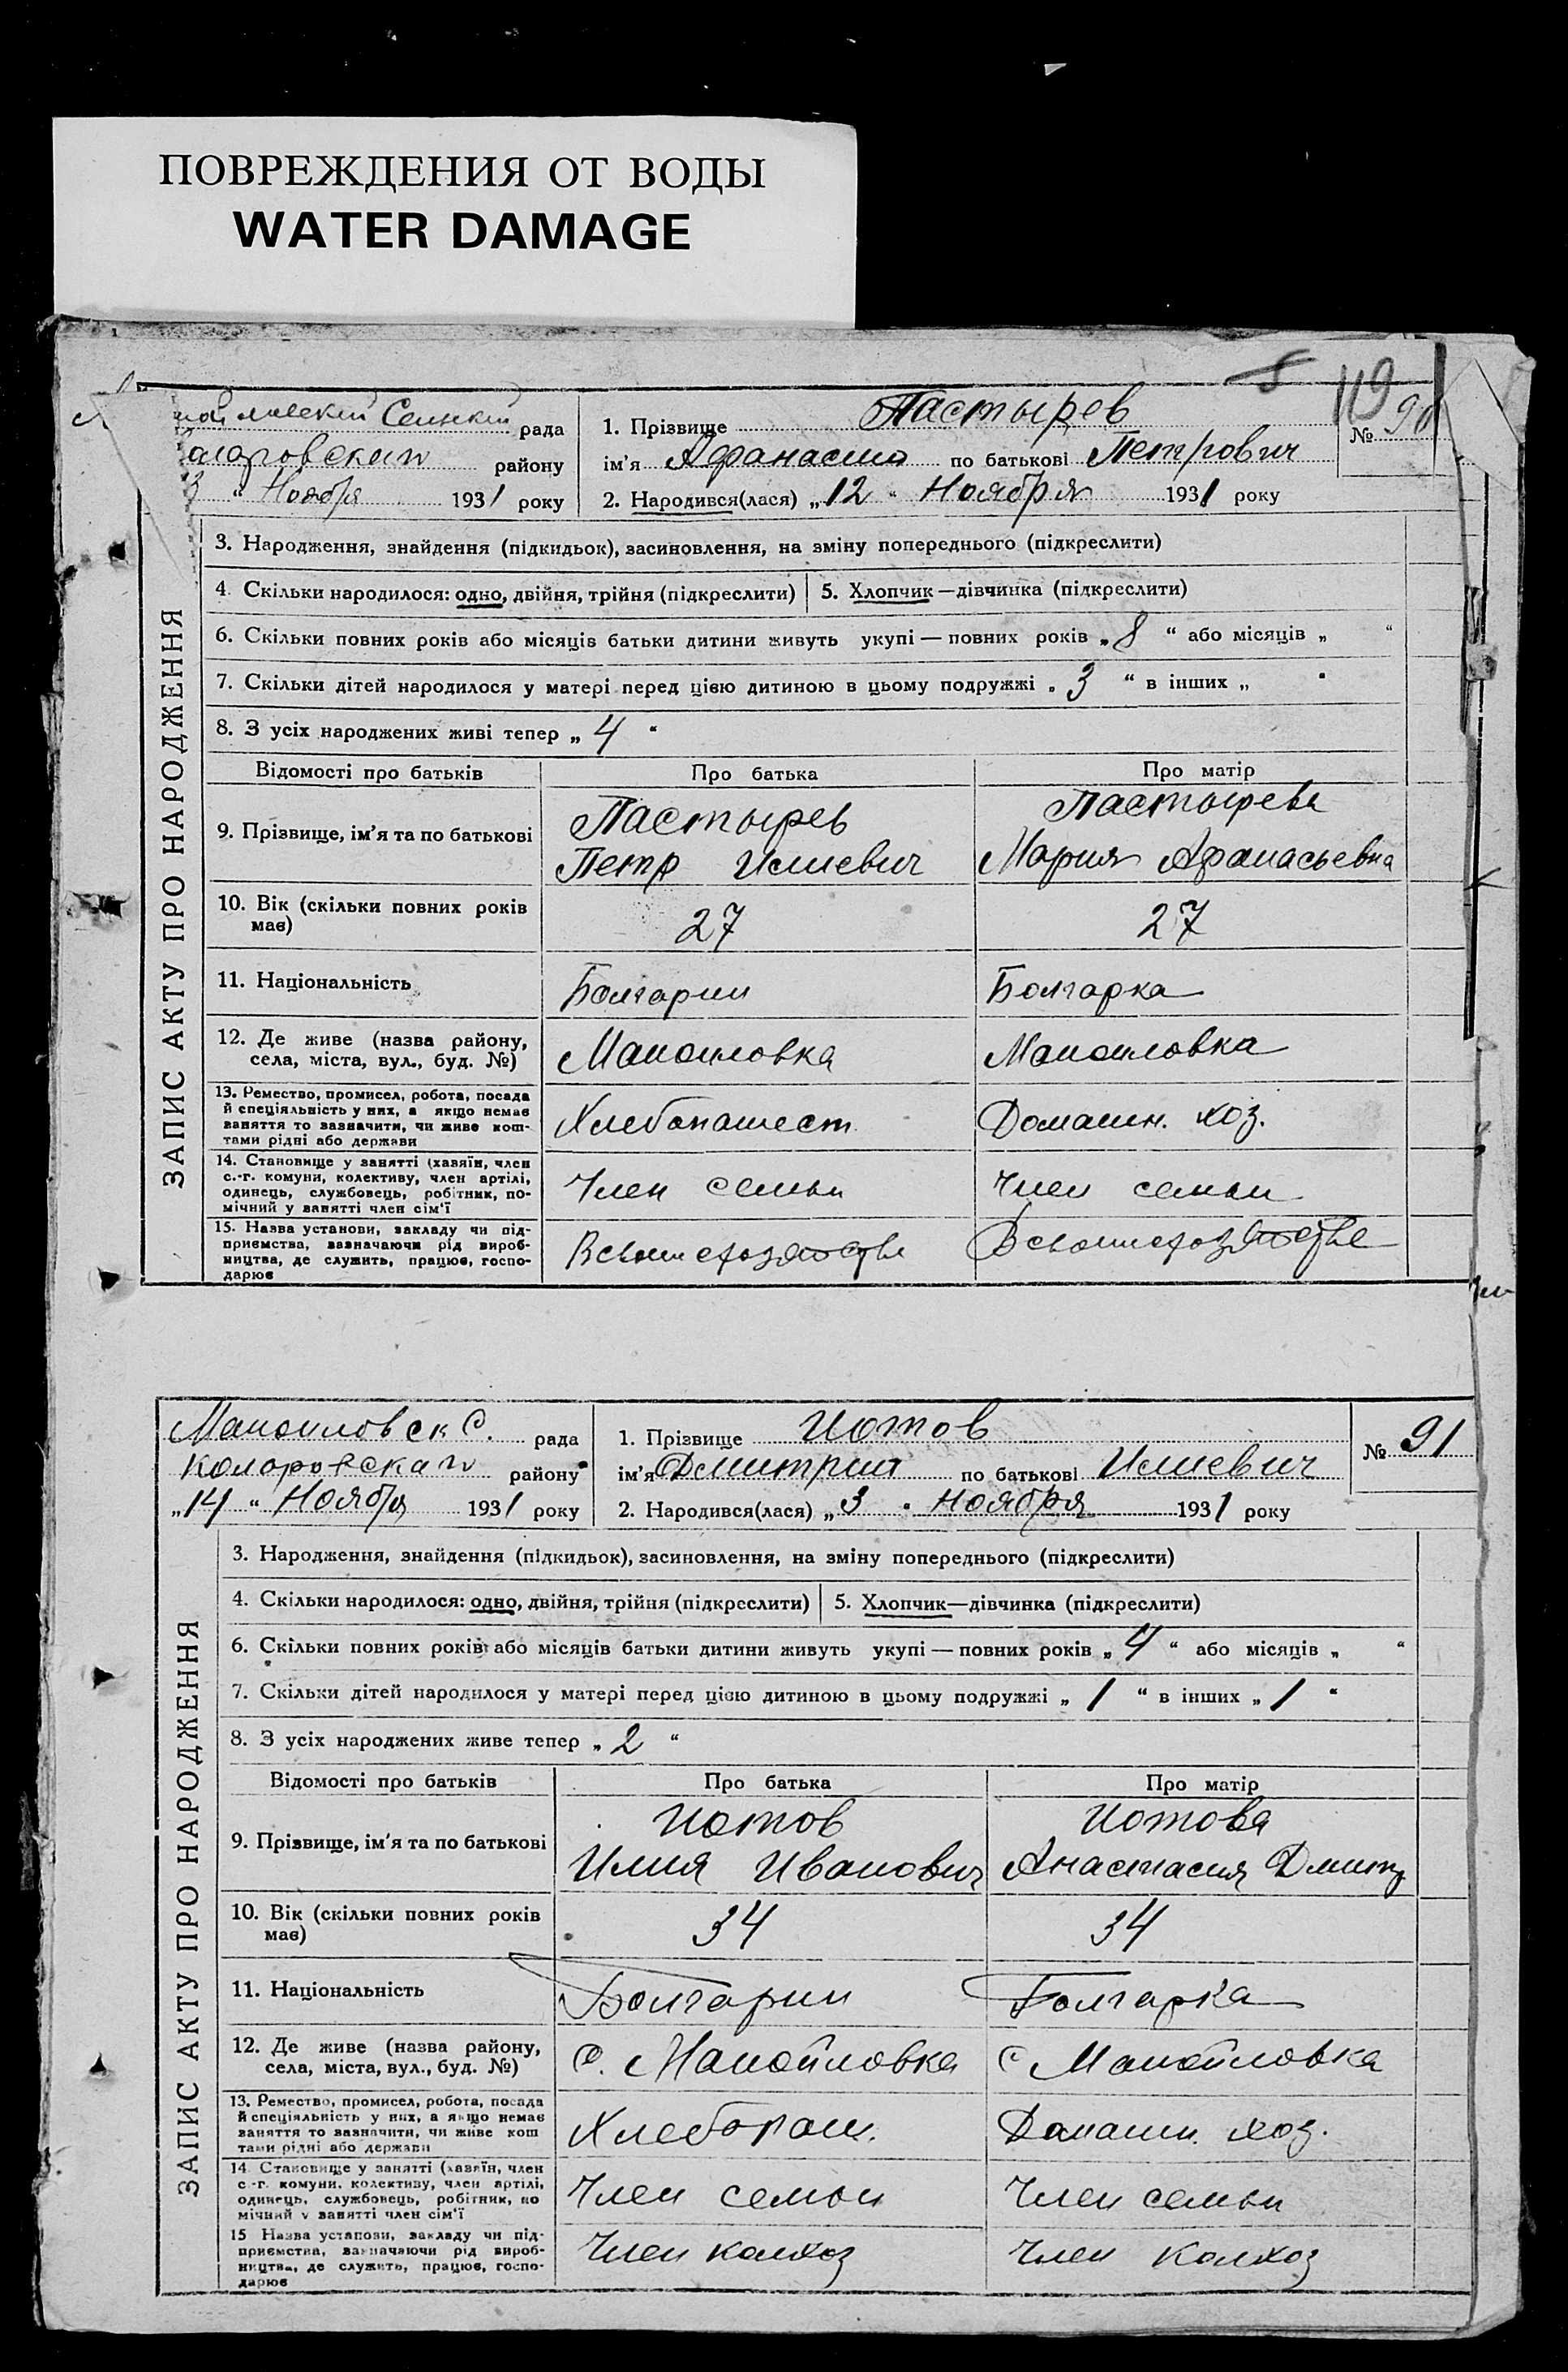 ПОВРЕЖДЕНИЯ ОТ ВОДЫ
WATER DAMAGE
119
Сельский рада
району
" Ноября 1931 року
1. Прізвище Пастырев
ім'я Афанасий по батькові Петрович
№ 90
2. Народився(лася) „12" Ноября 1931 року
ЗАПИС АКТУ ПРО НАРОДЖЕННЯ
3. Народження, знайдення (підкидьок), засиновлення, на зміну попереднього (підкреслити)
4. Скільки народилося: одно, двійня, трійня (підкреслити) 5. Хлопчик—дівчинка (підкреслити)
6. Скільки повних років або місяців батьки дитини живуть укупі — повних років „8" або місяців „ "
7. Скільки дітей народилося у матері перед цією дитиною в цьому подружжі „3" в інших „ "
8. З усіх народжених живі тепер „4"
Відомості про батьків Про батька Про матір
9. Прізвище, ім'я та по батькові
Пастырев
Петр Илиевич
Пастырева
Мария Афанасьевна
10. Вік (скільки повних років має) 27 27
11. Національність Болгарин Болгарка
12. Де живе (назва району, села, міста, вул., буд. №) Маноиловка Маноиловка
13. Ремество, промисел, робота, посада
й спеціяльність у них, а якщо немає
заняття то зазначити, чи живе кош-
тами рідні або держави
Хлебопашест Домашн. хоз.
14. Становище у занятті (хазяїн, член
с.-г. комуни, колективу, член артілі,
одинець, службовець, робітник, по-
мічний у занятті член сім'ї
Член семьи Член семьи
15. Назва установи, закладу чи під-
приємства, зазначаючи рід вироб-
ництва, де служить, працює, госпо-
дарює
В своем хозяйстве В своем хозяйстве
Маноиловск С. рада
Коларовскаго району
„14" Ноября 1931 року
1. Прізвище Иотов
ім'я Дмитрий по батькові Илиевич
№ 91
2. Народився(лася) „3" Ноября 1931 року
ЗАПИС АКТУ ПРО НАРОДЖЕННЯ
3. Народження, знайдення (підкидьок), засиновлення, на зміну попереднього (підкреслити)
4. Скільки народилося: одно, двійня, трійня (підкреслити) 5. Хлопчик—дівчинка (підкреслити)
6. Скільки повних років або місяців батьки дитини живуть укупі — повних років „4" або місяців „ "
7. Скільки дітей народилося у матері перед цією дитиною в цьому подружжі „1" в інших „1"
8. З усіх народжених живе тепер „2"
Відомості про батьків Про батька Про матір
9. Прізвище, ім'я та по батькові
Иотов
Илия Иванович
Иотова
Анастасия Дмитр
10. Вік (скільки повних років має) 34 34
11. Національність Болгарин Болгарка
12. Де живе (назва району, села, міста, вул., буд. №) С. Манойловка С Манойловка
13. Ремество, промисел, робота, посада
й спеціяльність у них, а якщо немає
заняття то зазначити, чи живе кош
тами рідні або держави
Хлебопаш. Домашн. хоз.
14. Становище у занятті (хазяїн, член
с.-г. комуни, колективу, член артілі,
одинець, службовець, робітник, по
мічний у занятті член сім'ї
Член семьи Член семьи
15 Назва установи, закладу чи під-
приємства, зазначаючи рід вироб-
ництва, де служить, працює, госпо-
дарює
Член колхоз Член колхоз